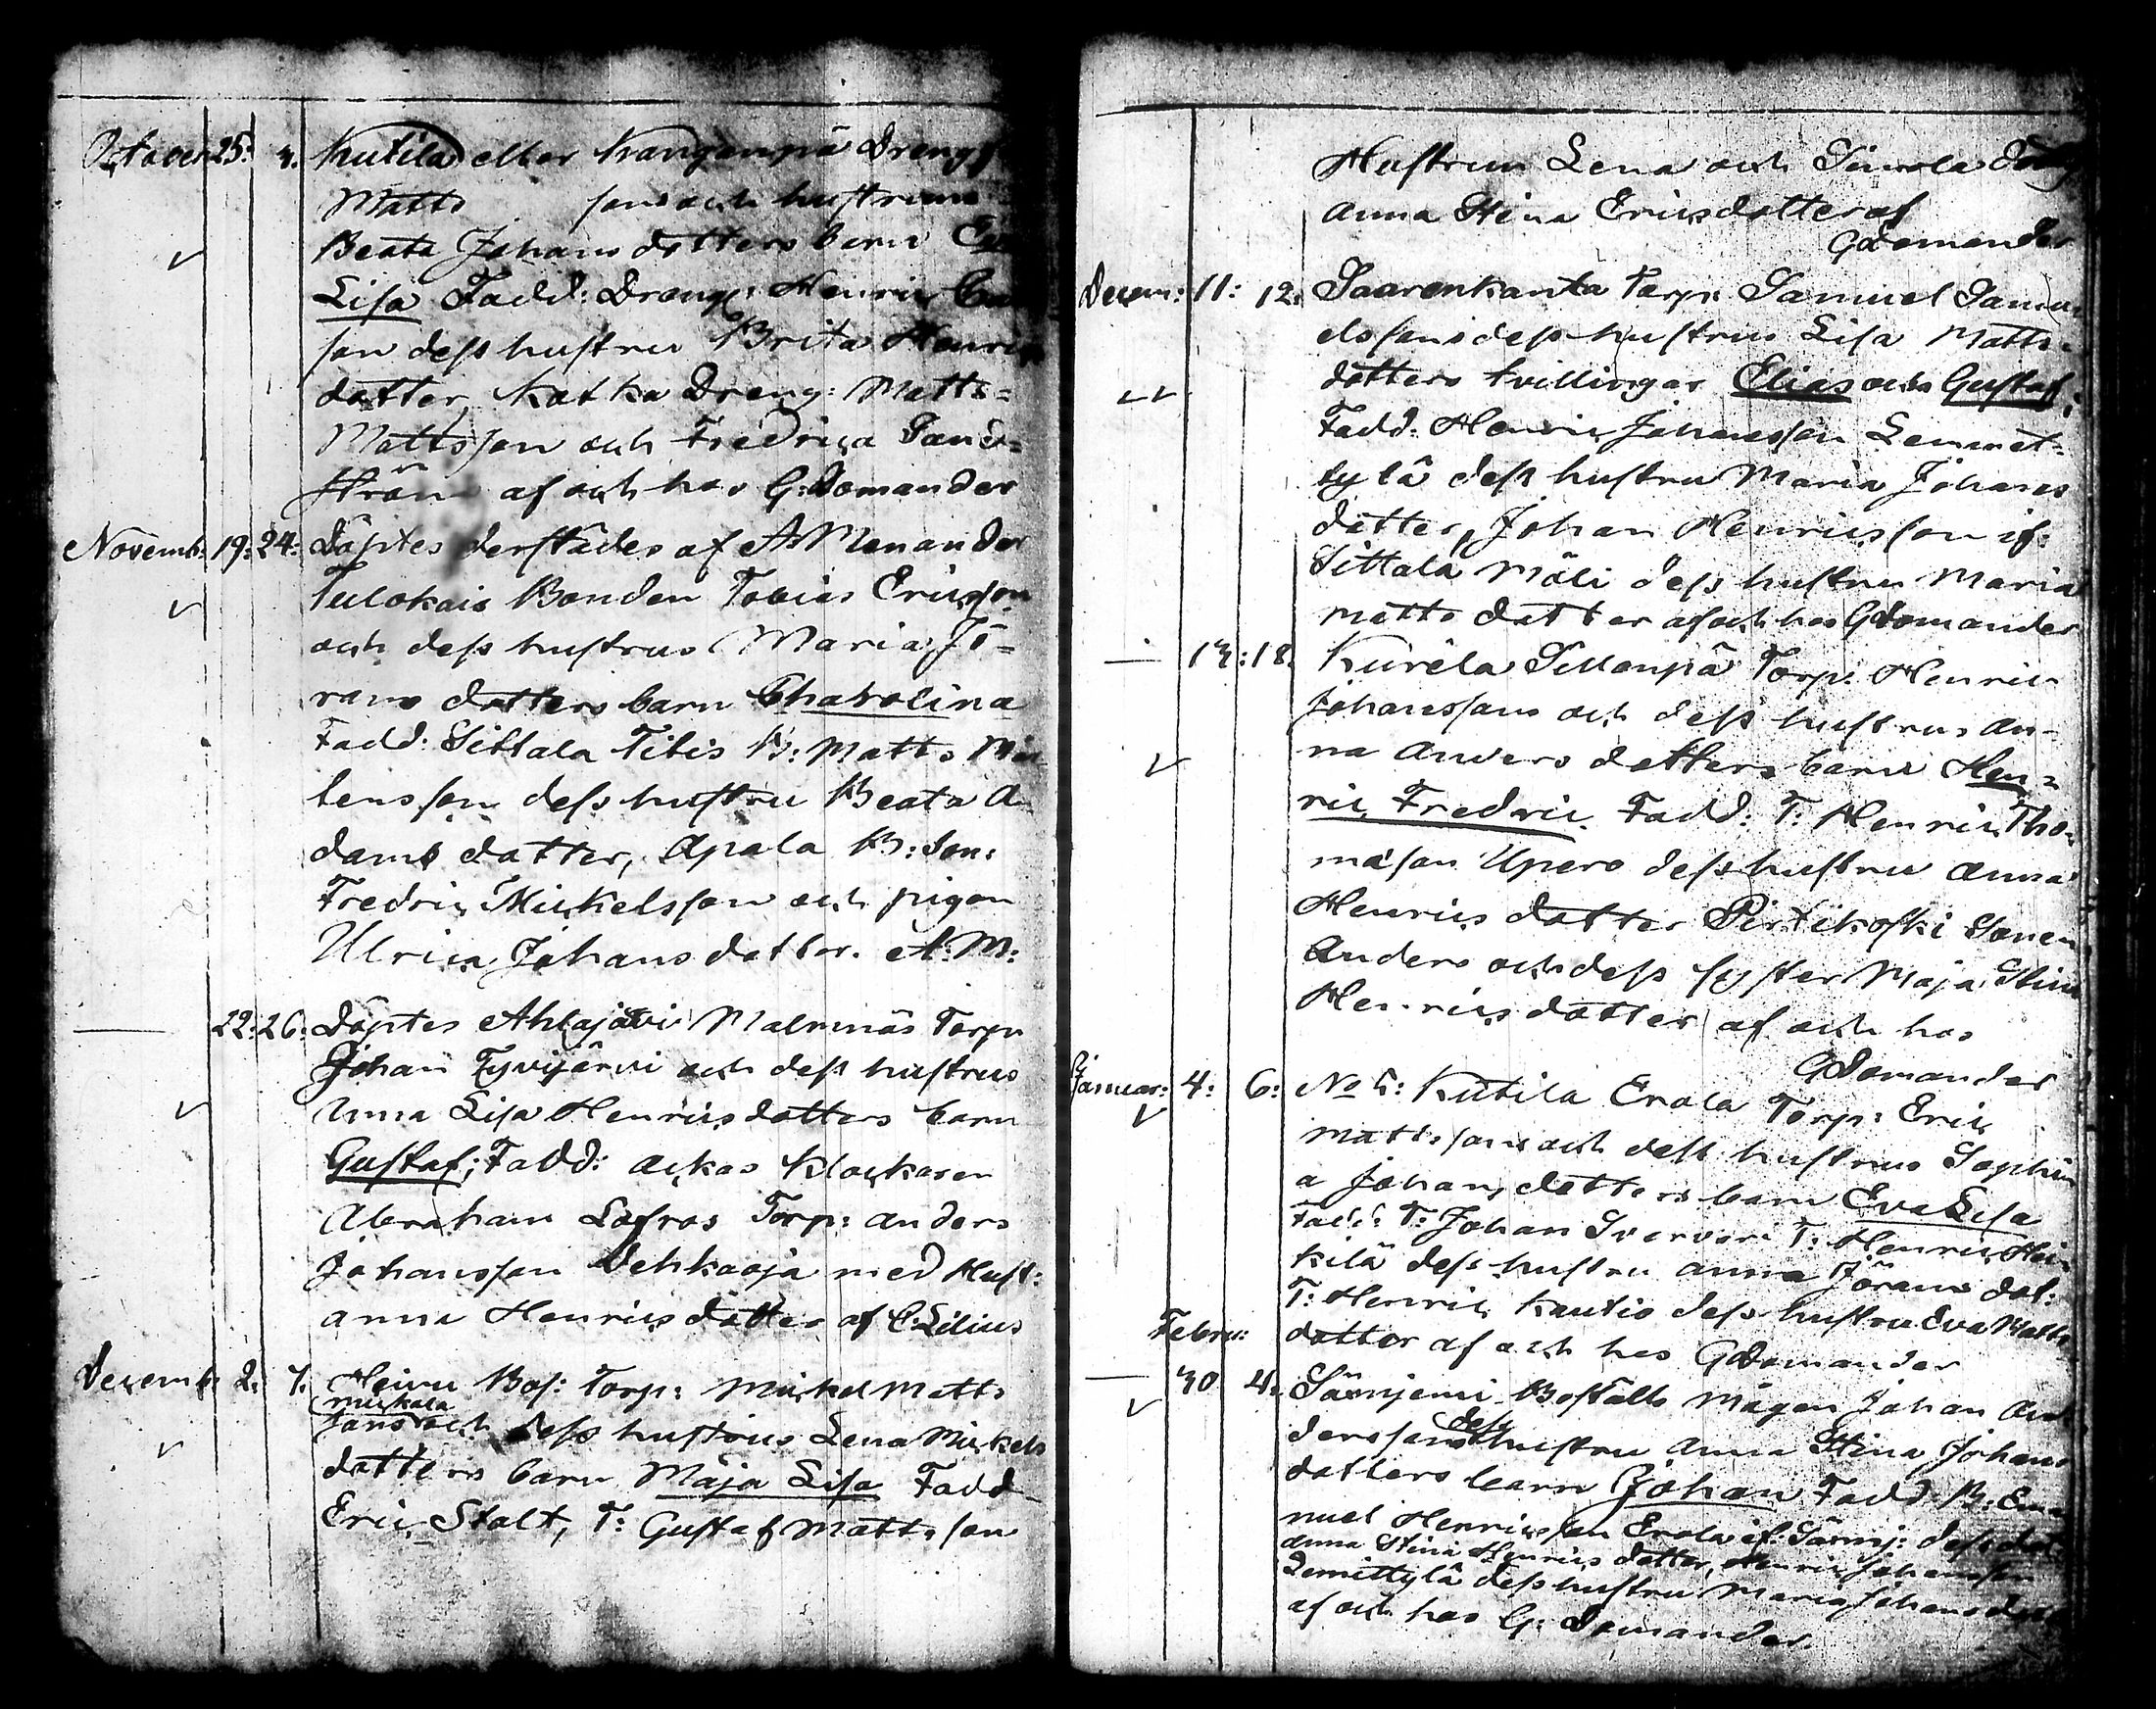 October 25: 4. Kutila eller Kangenpä Dreng:
Matts sons och hustruns
Beata Johans dotters barn Eva
Lisa Fadd: Dreng: Henric
son dess hustru Brita Henrics
dotter, Katka Dreng: Matts=
Mattsson och Fredrica Sand=
ström af och hos G: Domander
Novemb: 19: 24: Döptes derstädes af A: Menander
Tulokais Bonden Tobias Ericsson
och dess hustrus Maria Jö=
rans dotters barn Charolina
Fadd: Sittala Titis B: Matts Mic
kelsson dess hustru Beata A=
dams dotter, Apala B: Son:
Fredric Mickelsson och pigan
Ulrica Johans dotter. A: M:
— 22: 26: Döptes Ahlajärvi Malmnäs Torp:
Johan Tyvijärvi och dess hustrus
Anna Lisa Henricsdotters barn
Gustaf; Fadd: Ackas Klockaren
Abraham Lofros Torp: Anders
Johansson Vehkaoja med Hust:
Anna Henricsdotter af C: Lilius
Decemb: 2: 7. Heinu Bos: Torp: Mickel Matts
Mickala
sons och dess hustrus Lena Mickels
dotters barn Maja Lisa Fadd
Eric Stalt, T: Gustaf Mattsson
Hustrun Lena och Simola
Anna Stina Ericsdotter af
G Domander
Decem: 11: 12: Saarenkanta Torp: Samuel Samu
elssons dess hustrus Lisa Matts=
dotters tvillingar Elias och Gustaf;
Fadd: Henric Johansson Lemmet=
tylä dess hustru Maria Johans
dotter, Johan Henricsson if:
Sittala Mäli dess hustru Maria
Matts dotter af och hos G Domander
— 14: 18. Kurela Sillanpä Torp: Henric
Johanssons och dess hustrus An-
na Anders dotters barn Hen=
ric Fredric. Fadd: T: Henric Tho=
mason Upero dess hustru Anna
Henrics dotter Pirtikoski Sonen
Anders och dess syster Maja Stina
Henrics dotter af och hos
G Domander
Januar: 4: 6: No 5: Kutila Erola Torp: Eric
Mattssons och dess hustrus Sophi
a Johans dotters barn Eva Lisa
Fadd: T: Johan T: Henric Hei
kilä dess hustru Anna Jörans dot:
T: Henric Kautio dess hustru Eva Matts
Febru: dotter af och hos G Domander
— 30 4: Särnjemi Boställs Mågen Johan An
dess
derssons hustru Anna Stina Johans
dotters barn Johan Fadd B: Ema
nuel Henricsson Erola if: Särnj: dess dot:
Anna Stina Henrics dotter, Henric Johansson
Lemittylä dess hustru Maria Johans dotter
af och hos G: Domander.